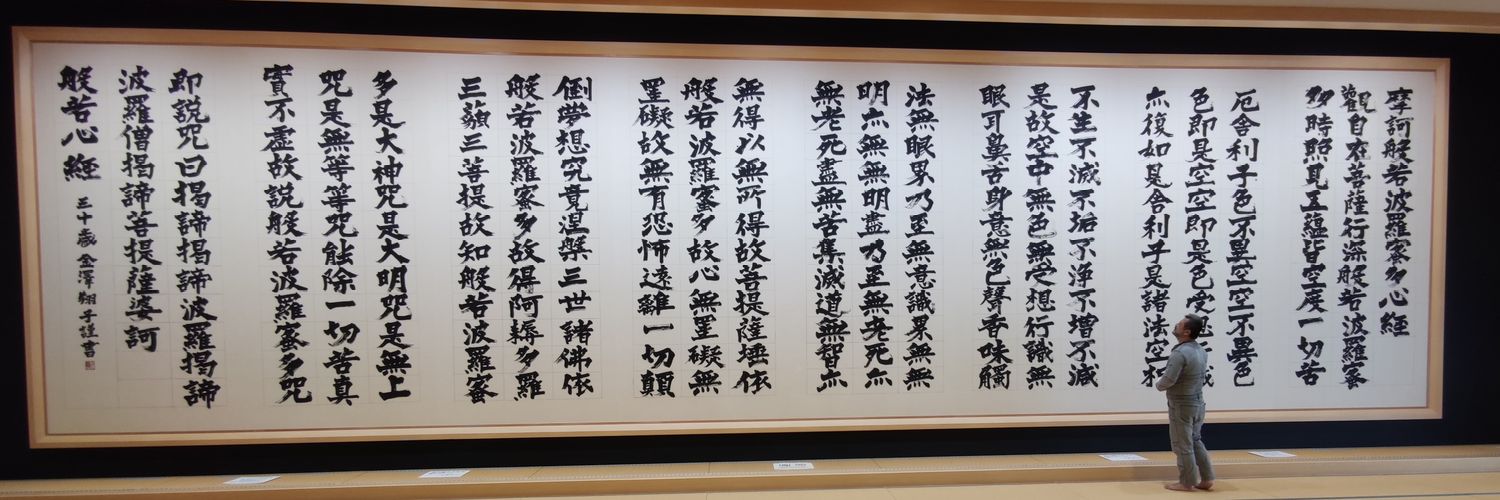 摩訶般若波羅蜜多心經
觀自在菩薩行深般若波羅蜜
多時照見五蘊皆空度一切苦
厄舍利子色不異空空不異色
色即是空空即是色受
亦復如是舍利子是諸法空相
不生不滅不垢不淨不增不減
是故空中無色無受想行識無
眼耳鼻舌身意無色聲香味觸
法無眼界乃至無意識界無無
明亦無無明盡乃至無老死亦
無老死盡無苦集滅道無智亦
無得以無所得故菩提薩埵依
般若波羅蜜多故心無罣礙無
罣礙故無有恐怖遠離一切顛
倒夢想究竟涅槃三世諸佛依
般若波羅蜜多故得阿耨多羅
三藐三菩提故知般若波羅蜜
多是大神咒是大明咒是無上
咒是無等等咒能除一切苦真
實不虛故說般若波羅蜜多咒
即說咒曰揭諦揭諦波羅揭諦
波羅僧揭諦菩提薩婆訶
般若心經
三十歲 金澤翔子謹書